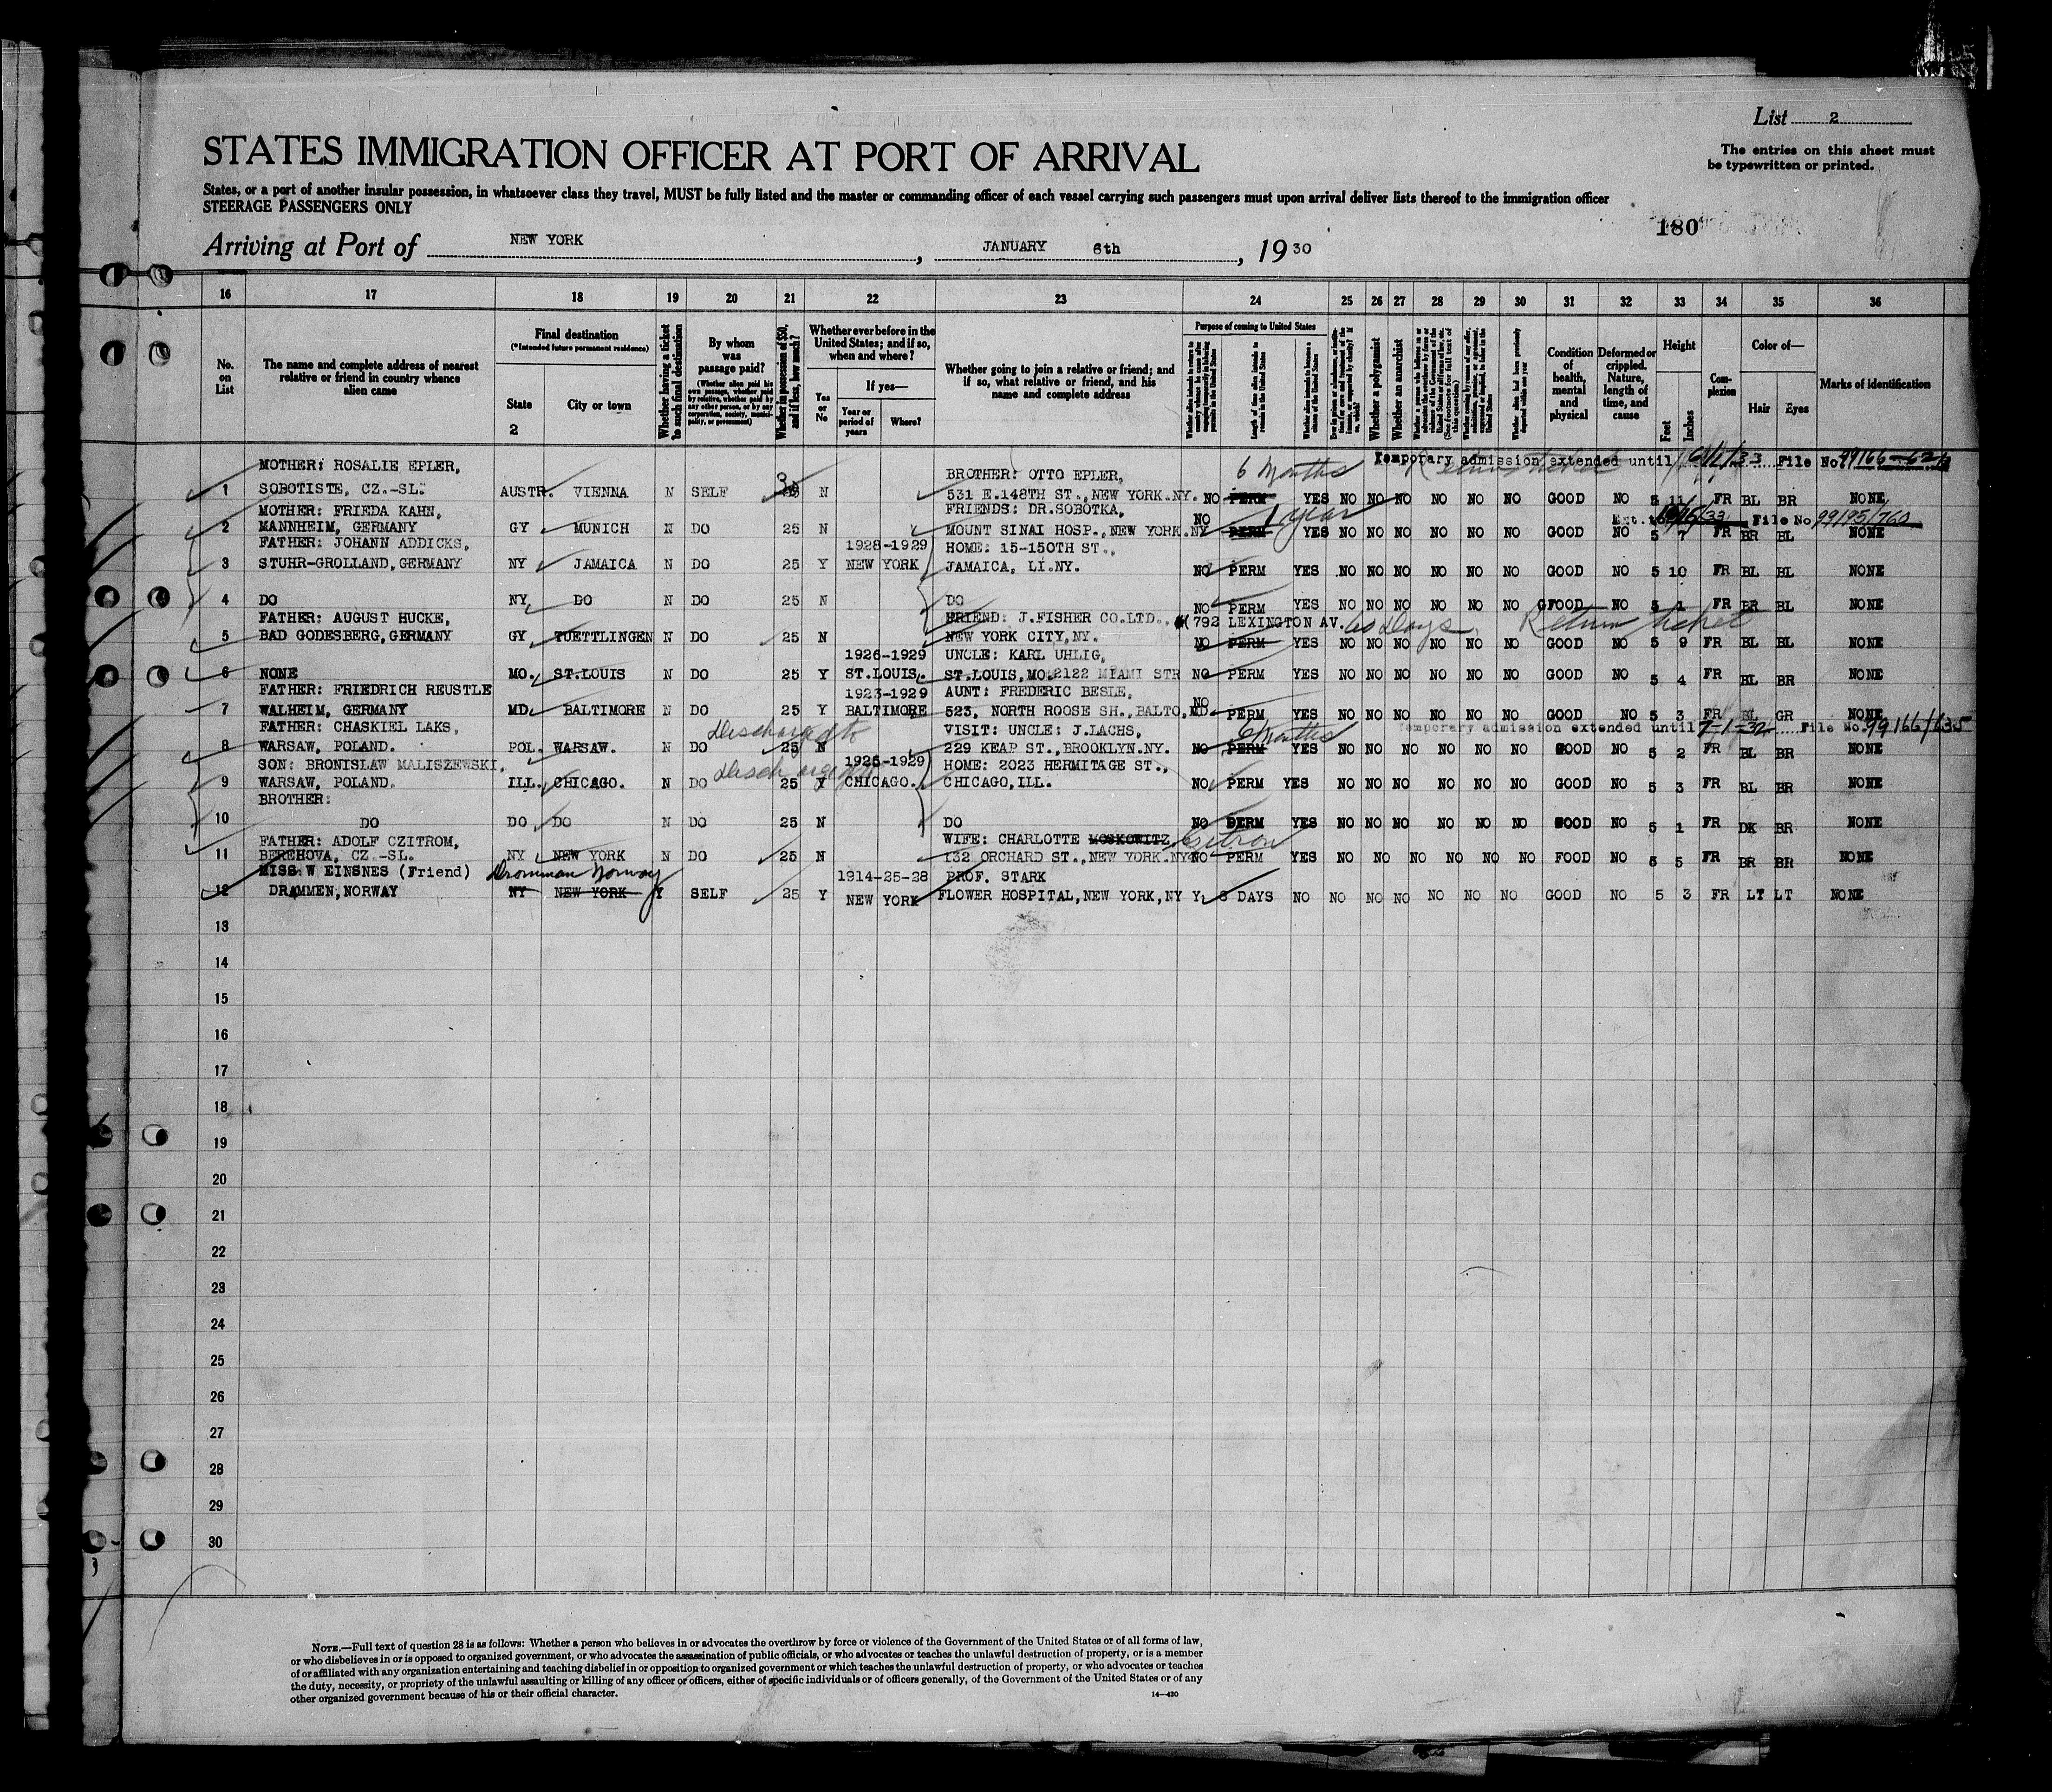 List 2
The entries on this sheet must
be typewritten or printed.
STATES IMMIGRATION OFFICER AT PORT OF ARRIVAL
States, or a port of another insular possession, in whatsoever class they travel, MUST be fully listed and the master or commanding officer of each vessel carrying such passengers must upon arrival deliver lists thereof to the immigration officer
STEERAGE PASSENGERS ONLY
180
Arriving at Port of NEW YORK, JANUARY 6th, 1930
16 17 18 19 20 21 22 23 24 25 26 27 28 29 30 31 32 33 34 35 36
No. on List
The name and complete address of nearest relative or friend in country whence alien came
Final destination
(*Intended future permanent residence)
State
2
City or town
Whether having a ticket to such final destination
By whom was passage paid?
(Whether alien paid his own passage, whether paid by relative, whether paid by any other person, or by any corporation, society, municipality, or government)
Whether in possession of $50, and if less, how much?
Whether ever before in the United States; and if so, when and where?
Yes or No
If yes—
Year or period of years
Where?
Whether going to join a relative or friend; and if so, what relative or friend, and his name and complete address
Purpose of coming to United States
Length of time alien intends to remain in the United States
Whether alien intends to become a citizen of the United States
Whether a polygamist
Whether an anarchist
Condition of health, mental and physical
Deformed or crippled. Nature, length of time, and cause
Height
Feet
Inches
Complexion
Color of—
Hair
Eyes
Marks of identification
MOTHER: ROSALIE EPLER, BROTHER: OTTO EPLER, 6 Months Temporary admission extended until 6/1/33 File No. 99166-62
1 SOBOTISTE, CZ.-SL. AUSTR. VIENNA N SELF N 531 E.148TH ST., NEW YORK.NY. NO PERM YES NO NO NO NO NO NO GOOD NO 5 11 FR BL BR NONE
MOTHER: FRIEDA KAHN, FRIENDS: DR.SOBOTKA, 1 year File No 99195/760
2 MANNHEIM, GERMANY GY MUNICH N DO 25 N MOUNT SINAI HOSP., NEW YORK.NY NO PERM YES NO NO NO NO NO NO GOOD NO 5 7 FR BR BL NONE
FATHER: JOHANN ADDICKS, 1928-1929 HOME: 15-150TH ST.,
3 STUHR-GROLLAND, GERMANY NY JAMAICA N DO 25 Y NEW YORK JAMAICA, LI.NY. NO PERM YES NO NO NO NO NO NO GOOD NO 5 10 FR BL BL NONE
4 DO NY DO N DO 25 N DO NO PERM YES NO NO NO NO NO NO GFOOD NO 5 1 FR BR BL NONE
FATHER: AUGUST HUCKE, FRIEND: J.FISHER CO.LTD., (792 LEXINGTON AV. 60 days Return ticket
5 BAD GODESBERG, GERMANY GY TUETTLINGEN N DO 25 N NEW YORK CITY, NY. NO PERM YES NO NO NO NO NO NO GOOD NO 5 9 FR BL BL NONE
1926-1929 UNCLE: KARL UHLIG,
6 NONE MO. ST.LOUIS N DO 25 Y ST.LOUIS. ST.LOUIS, MO. 2122 MIAMI STR NO PERM YES NO NO NO NO NO NO GOOD NO 5 4 FR BL BR NONE
FATHER: FRIEDRICH REUSTLE 1923-1929 AUNT: FREDERIC BESLE,
7 WALHEIM, GERMANY MD. BALTIMORE N DO 25 Y BALTIMORE 523, NORTH ROOSE SH., BALTO, MD. NO PERM YES NO NO NO NO NO NO GOOD NO 5 3 FR BL GR NONE
FATHER: CHASKIEL LAKS, VISIT: UNCLE: J.LACHS, 6 Months Temporary admission extended until 7-1-32 File No. 99166/635
8 WARSAW, POLAND. POL. WARSAW. N DO 25 N 229 KEAP ST., BROOKLYN.NY. NO PERM YES NO NO NO NO NO NO GOOD NO 5 2 FR BL BR NONE
SON: BRONISLAW MALISZEWSKI, 1925-1929 HOME: 2023 HERMITAGE ST.,
9 WARSAW, POLAND. ILL. CHICAGO. N DO 25 Y CHICAGO. CHICAGO, ILL. NO PERM YES NO NO NO NO NO NO GOOD NO 5 3 FR BL BR NONE
BROTHER:
10 DO DO DO N DO 25 N DO NO PERM YES NO NO NO NO NO NO GOOD NO 5 1 FR DK BR NONE
FATHER: ADOLF CZITROM, WIFE: CHARLOTTE MOSKOWITZ
11 BEREHOVA, CZ.-SL. NY NEW YORK N DO 25 N 132 ORCHARD ST., NEW YORK.NY NO PERM YES NO NO NO NO NO NO FOOD NO 5 5 FR BR BR NONE
MISS W EINSNES (Friend) Norway 1914-25-28 PROF. STARK
12 DRAMMEN, NORWAY NY NEW YORK Y SELF 25 Y NEW YORK FLOWER HOSPITAL, NEW YORK, NY Y 8 DAYS NO NO NO NO NO NO NO GOOD NO 5 3 FR LT LT NONE
13
14
15
16
17
18
19
20
21
22
23
24
25
26
27
28
29
30
NOTE.—Full text of question 28 is as follows: Whether a person who believes in or advocates the overthrow by force or violence of the Government of the United States or of all forms of law,
or who disbelieves in or is opposed to organized government, or who advocates the assassination of public officials, or who advocates or teaches the unlawful destruction of property, or is a member
of or affiliated with any organization entertaining and teaching disbelief in or opposition to organized government or which teaches the unlawful destruction of property, or who advocates or teaches
the duty, necessity, or propriety of the unlawful assaulting or killing of any officer or officers, either of specific individuals or of officers generally, of the Government of the United States or of any
other organized government because of his or their official character.
14—430